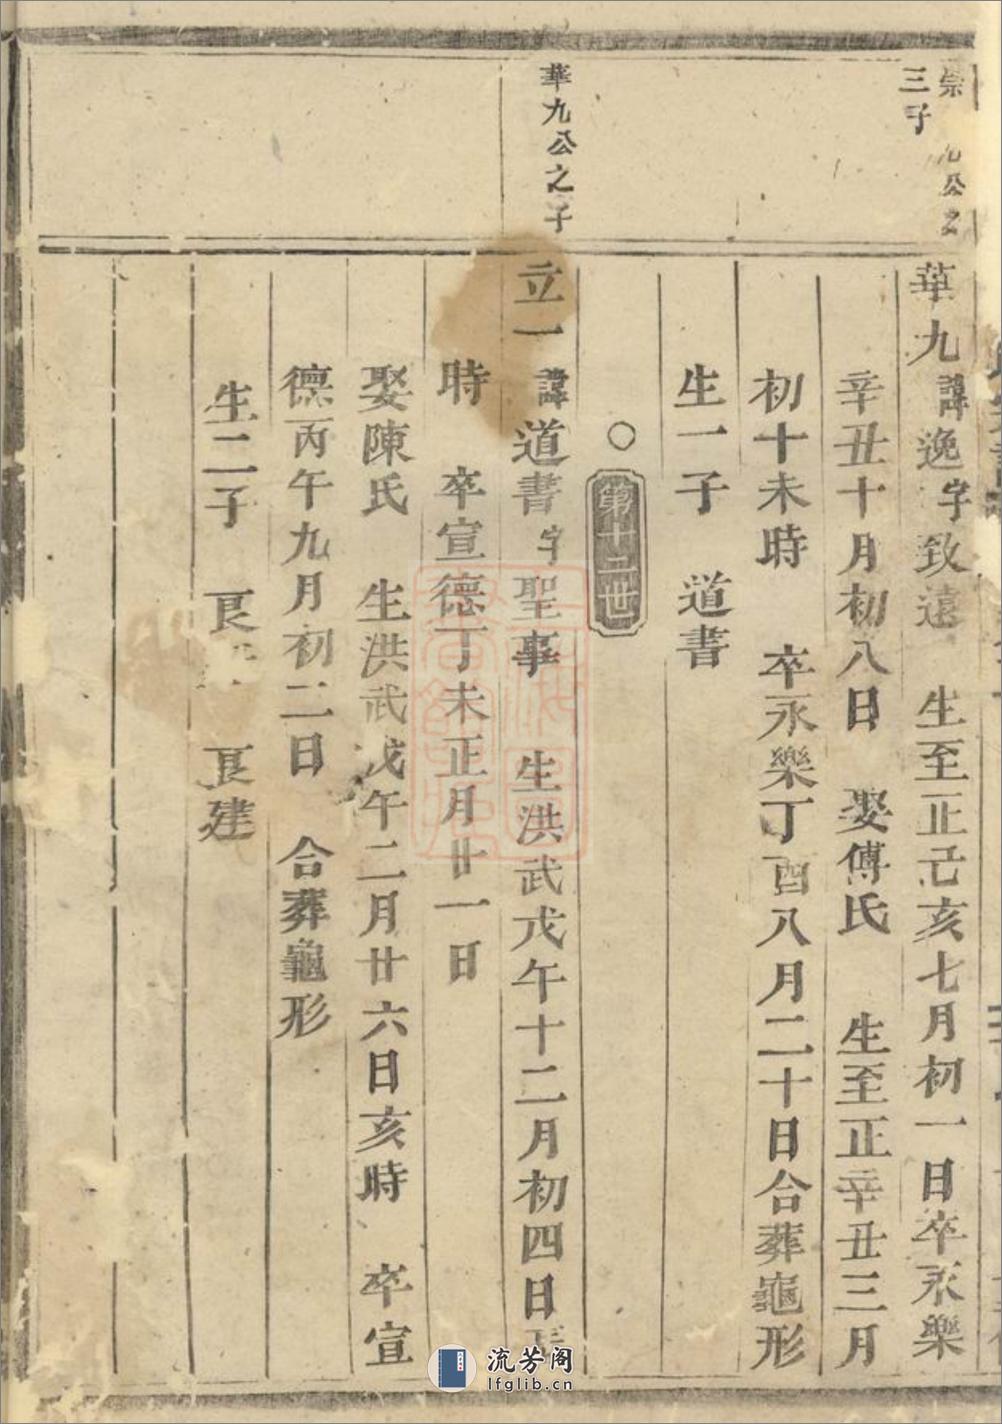 崇
九公之
三子
華九諱逸字致遠 生至正己亥七月初一日卒永樂
辛丑十月初八日 娶傅氏 生至正辛丑三月
初十未時 卒永樂丁酉八月二十日合葬龜形
生一子 道書
○ 第十二世
華九公之子
立一諱道書字聖事 生洪武戊午十二月初四日
時 卒宣德丁未正月廿一日
娶陳氏 生洪武戊午二月廿六日亥時 卒宣
德丙午九月初二日 合葬龜形
生二子 良 良建
流芳阁
lfglib.cn